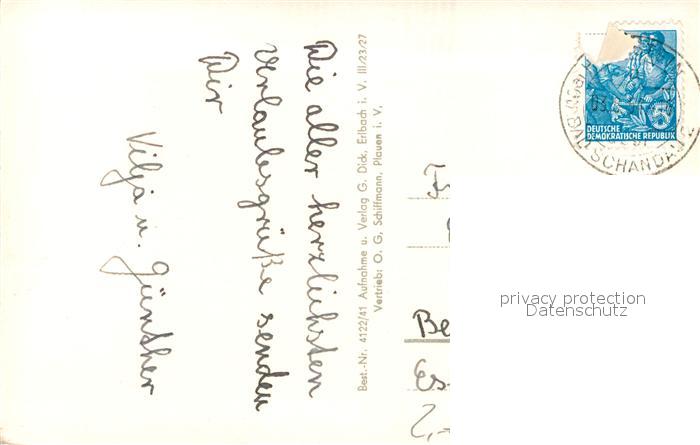 Die aller herzlichsten
Urlaubsgrüße senden
Dir
Vilja u. Günther
Best.-Nr. 4122/41 Aufnahme u. Verlag G. Dick, Erlbach i. V. III/23/27
Vertrieb: O. G. Schiffmann, Plauen i. V.
DEUTSCHE
DEMOKRATISCHE REPUBLIK
SCHANDAU
Be
Es
2,-
privacy protection
Datenschutz